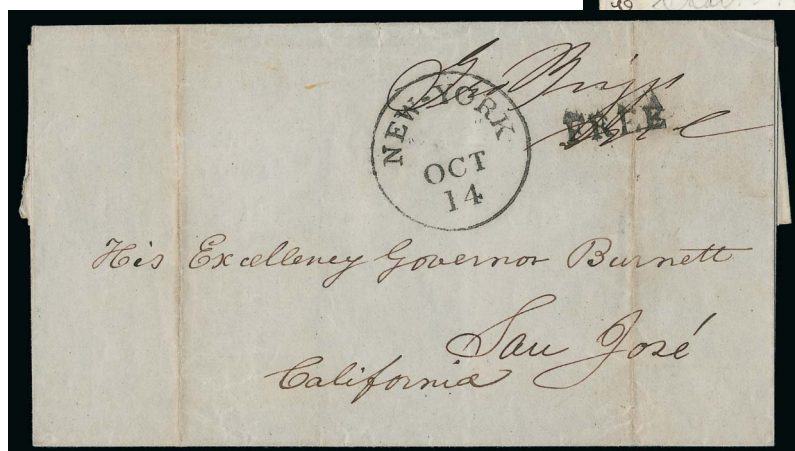 Geo Briggs
NEW-YORK
OCT
14
FREE
His Excellency Governor Burnett
San José
California